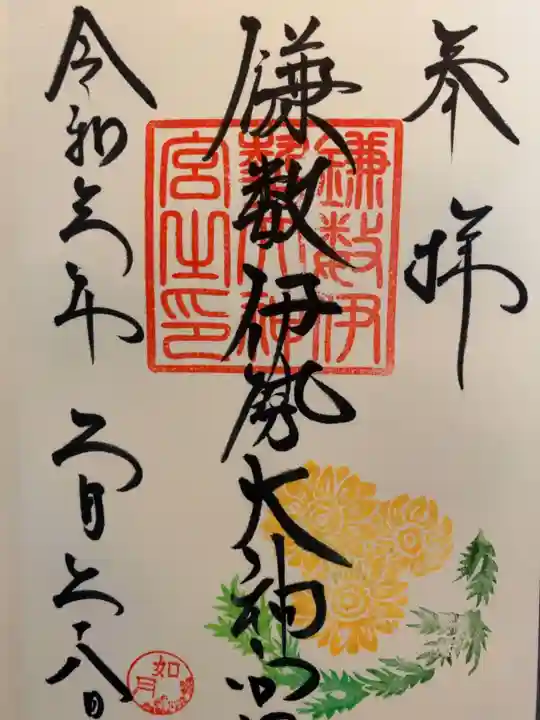 奉拝
鎌数伊勢大神宮
令和六年 二月二十八日
鎌数伊
勢大神
宮之印
如月